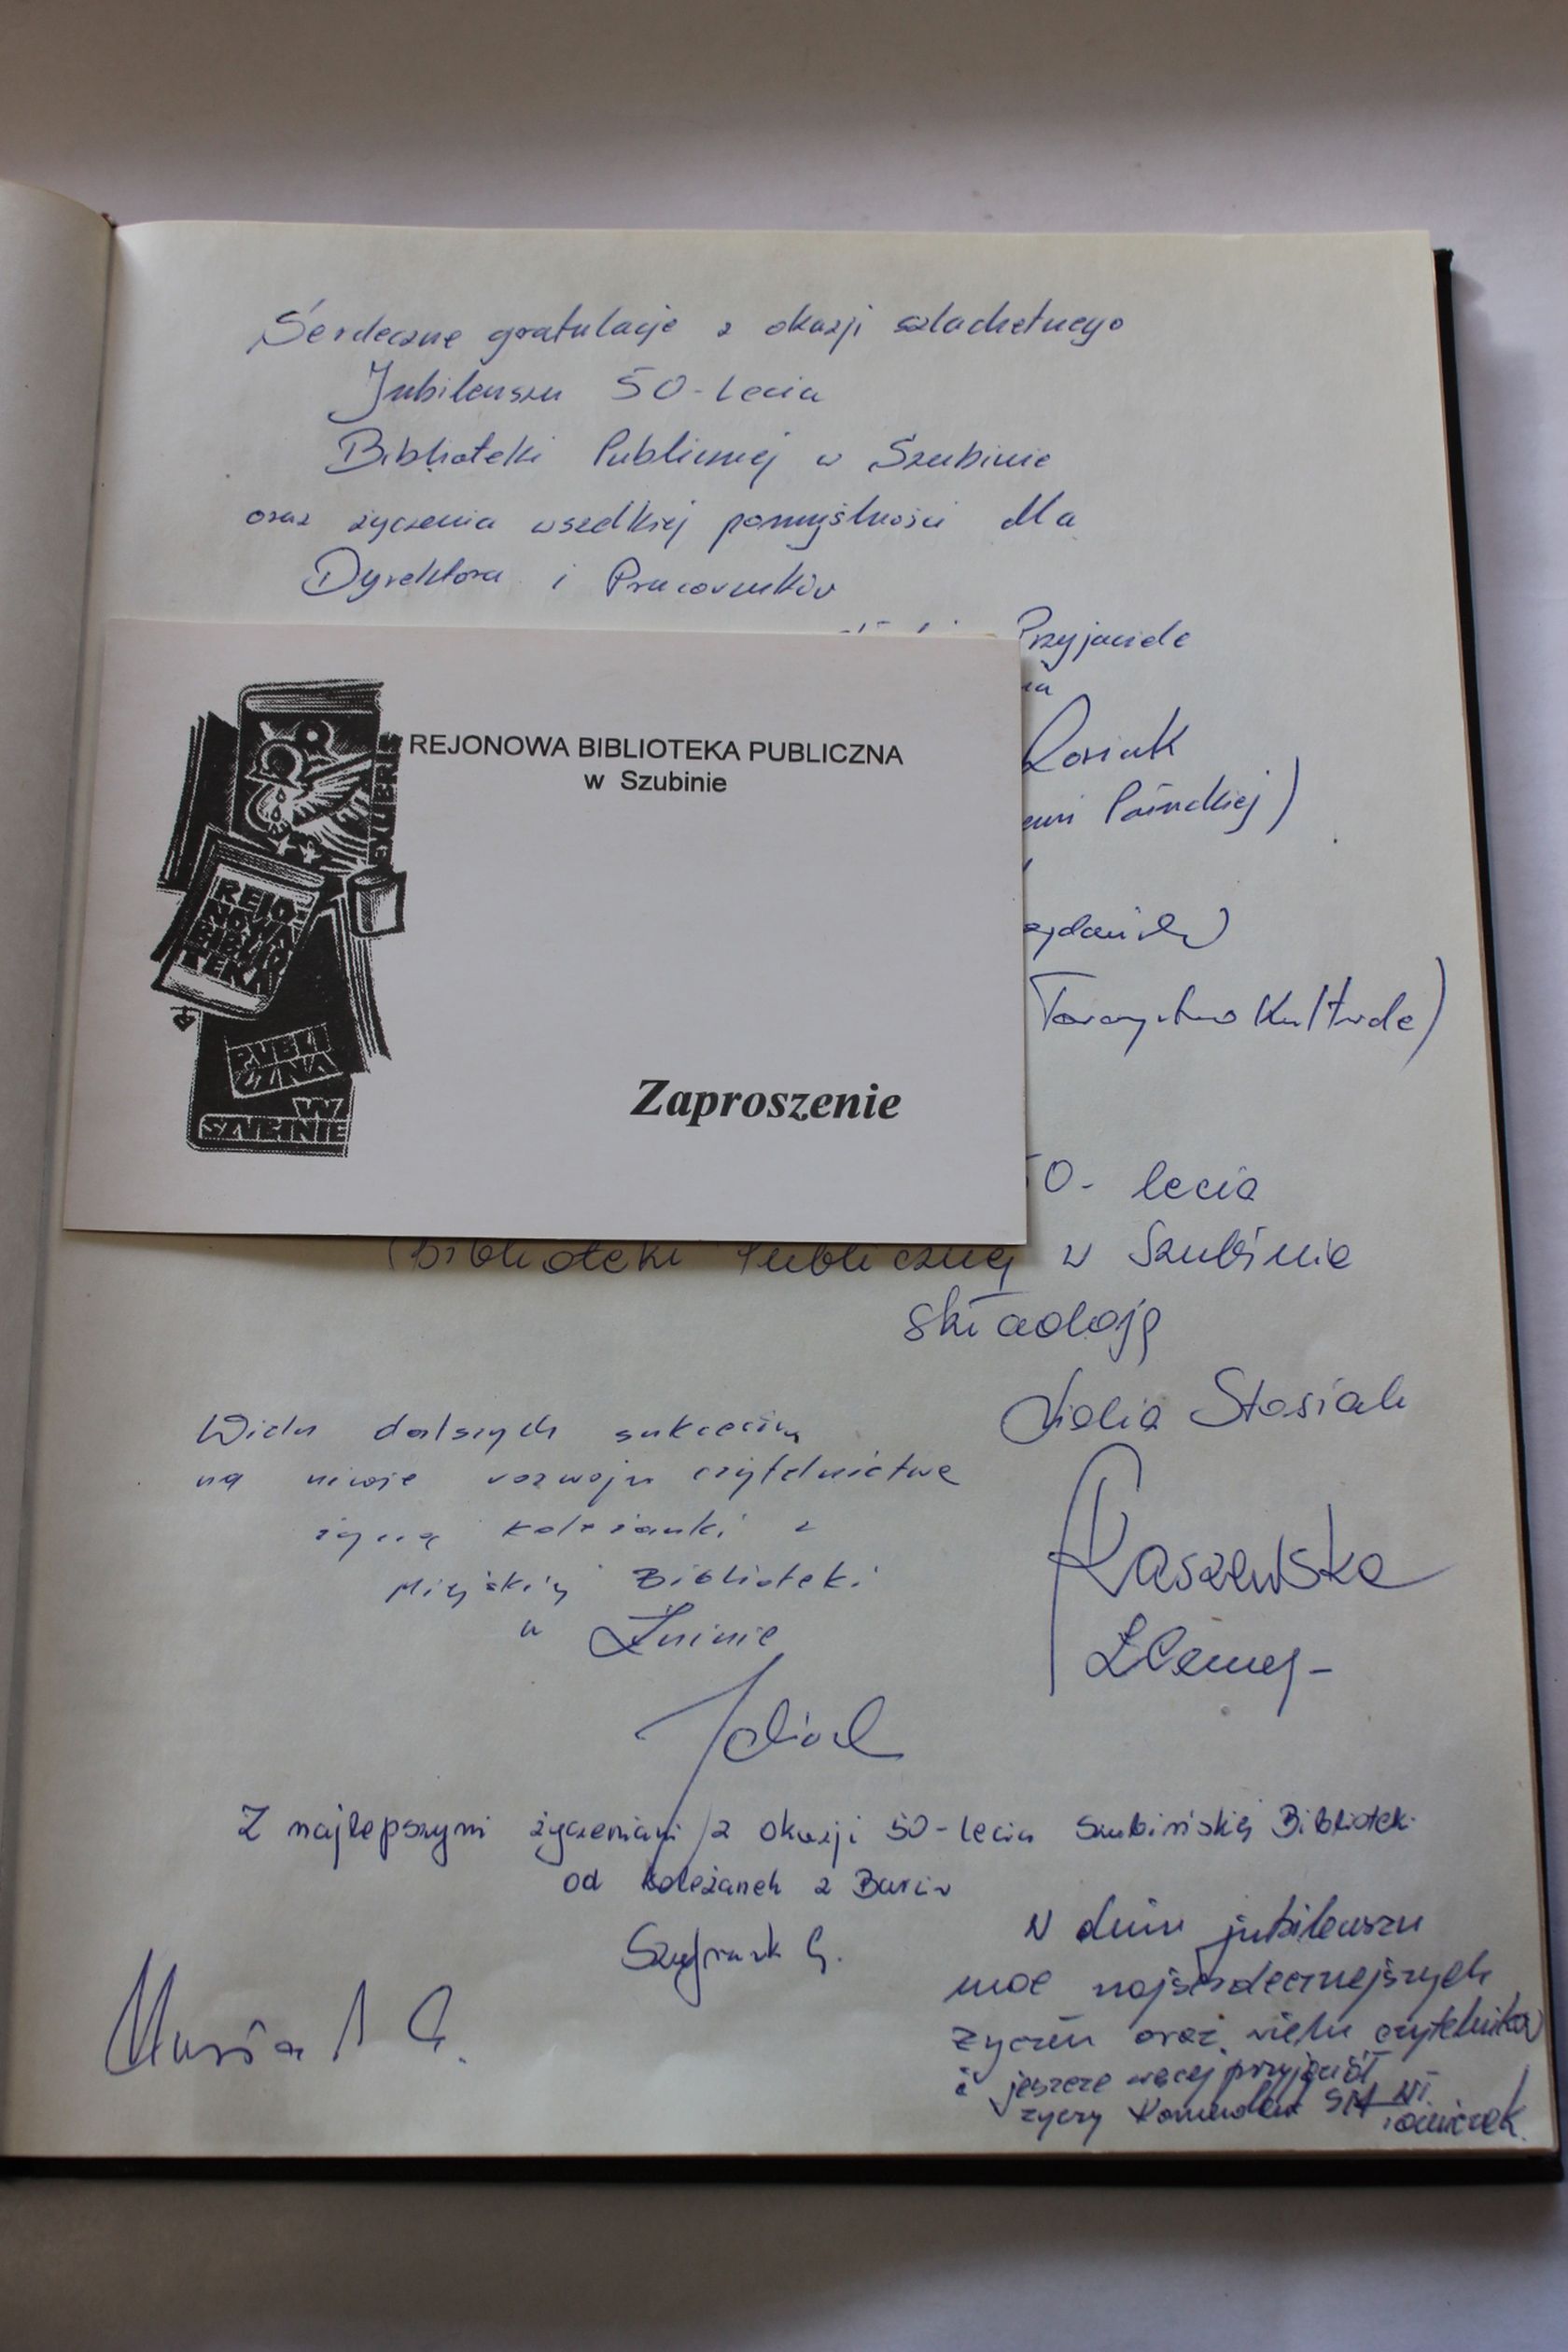 Serdeczne gratulacje z okazji szlachetnego
Jubileuszu 50-lecia
Biblioteki Publicznej w Szubinie
oraz życzenia wszelkiej pomyślności dla
Dyrektora i Pracowników
Przyjaciele
REJONOWA BIBLIOTEKA PUBLICZNA
w Szubinie
EXLIBRIS
REJO-
NOWA
BIBLIO
TEKA
PUBLI
CZNA
W
SZUBINIE
Zaproszenie
Towarzystwo Kultur
50- lecia
Biblioteki Publicznej w Szubinie
składają
Stosiak
Kaszewska
Wielu dalszych sukcesów
na niwie rozwoju czytelnictwa
życzą koleżanki z
Miejskiej Biblioteki
w Żninie
Z najlepszymi życzeniami z okazji 50-lecia Szubińskiej Biblioteki
od koleżanek z Barcin
W dniu jubileuszu
moc najserdeczniejszych
życzeń oraz wielu czytelników
i jeszcze więcej przyjaciół
życzy Komendant